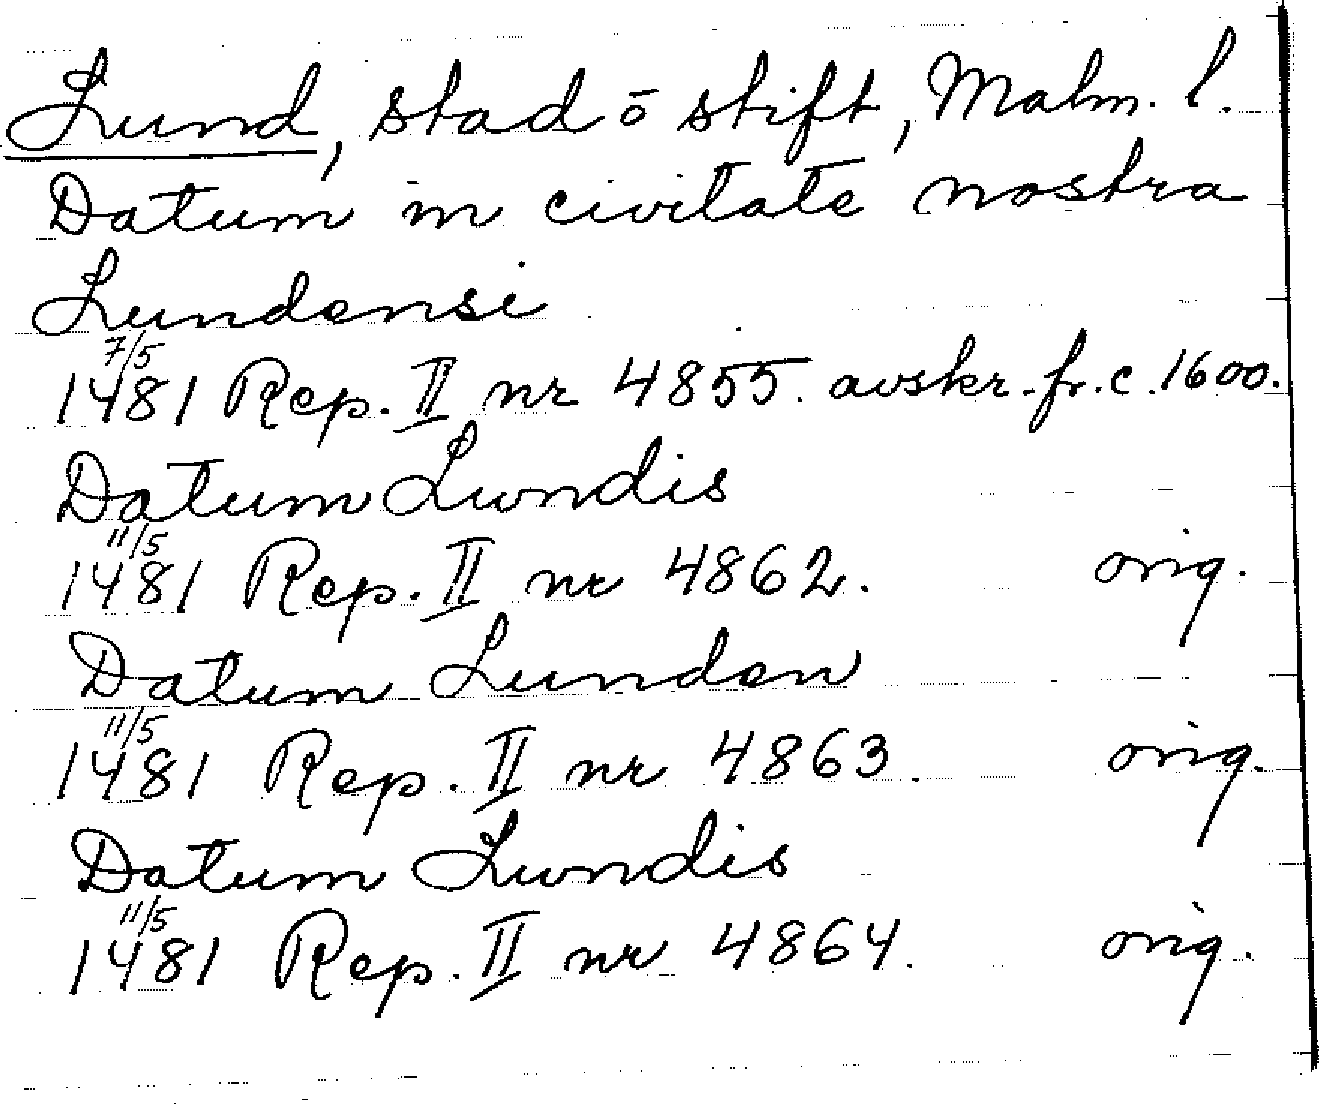 Lund, stad o stift, Malm. l.
Datum in civitate nostra
Lundensi
7/5
1481 Rep. II nr 4855. avskr. fr. c. 1600.
Datum Lundis
11/5
1481 Rep. II nr 4862. orig.
Datum Lunden
11/5
1481 Rep. II nr 4863. orig.
Datum Lundis
11/5
1481 Rep. II nr 4864. orig.